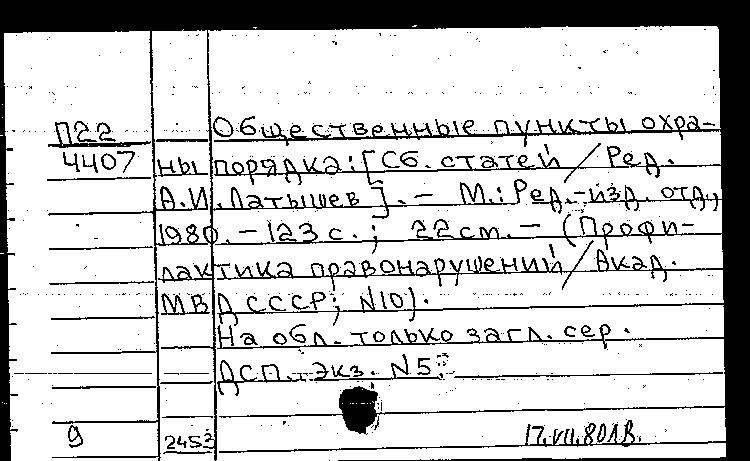 П22 Общественные пункты охра-
4407 ны порядка: [Сб. статей / Ред.
А.И. Латышев]. - М.: Ред.-изд. отд.,
1980. - 123 с.; 22 см. - (Профи-
лактика правонарушений / Акад.
МВД СССР; N10).
На обл. только загл. сер.
ДСП. Экз. N5.
9 2453 17.VII.80